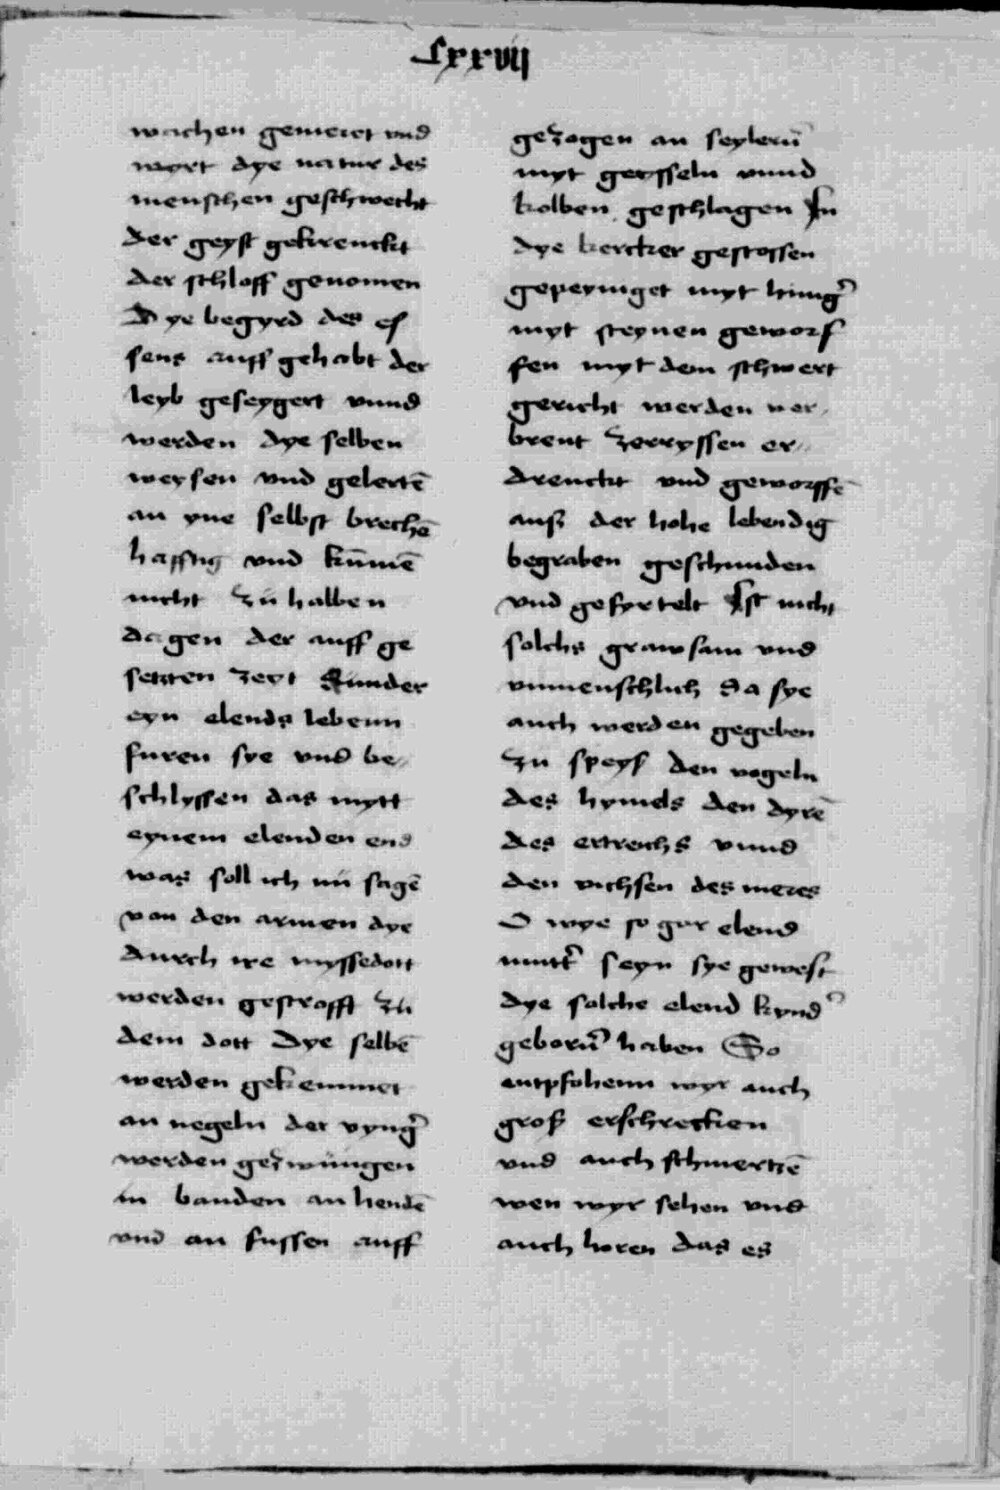 Lxxvij
wachen gemeret vnd
wyrt dye natur des
menschen geschwecht
der geyst gekrenckt
der schloff genomen
Dye begyrd des es
sens auff gehabt der
leyb geseygert vnnd
werden dye selben
weysen vnd gelertē
an yne selbst brechē
hafftig vnd kūmē
nicht zu halben
dagen der auff ge
setzten zeyt Kunder
eyn elends lebenn
furen sye vnd be
schlyssen das mytt
eynem elenden end
was soll ich nü sagē
von den armen dye
durch ire myssedott
werden gestrofft zü
dem dott Dye selbē
werden gekemmet
an negeln der vyng̉
werden gezwüngen
in banden an hendē
vnd an fussen auff
gezogen an seylern̉
myt geysseln vnnd
kolben geschlagen In
dye kercker gestossen
gepeyniget myt hung̉
myt steynen geworf
fen myt dem schwert
gericht werden ver
brent zerryssen er
drenckt vnd geworffē
auß der hohe lebendig
begraben geschunden
vnd gefyrtelt Ist nicht
solchs grawsam vnd
vnmenschlich Da sye
auch werden gegeben
zu speys den vogeln
des hymels den dyrē
des ertreichs vnnd
den vichsen des meres
O wye so gar elend
mutt̉ seyn sye gewest
dye solche elend kynd̉
geborn̉ haben So
entpfohenn wyr auch
groß erschrecken
vnd auch schmertzē
wen wyr sehen vnd
auch horen das es